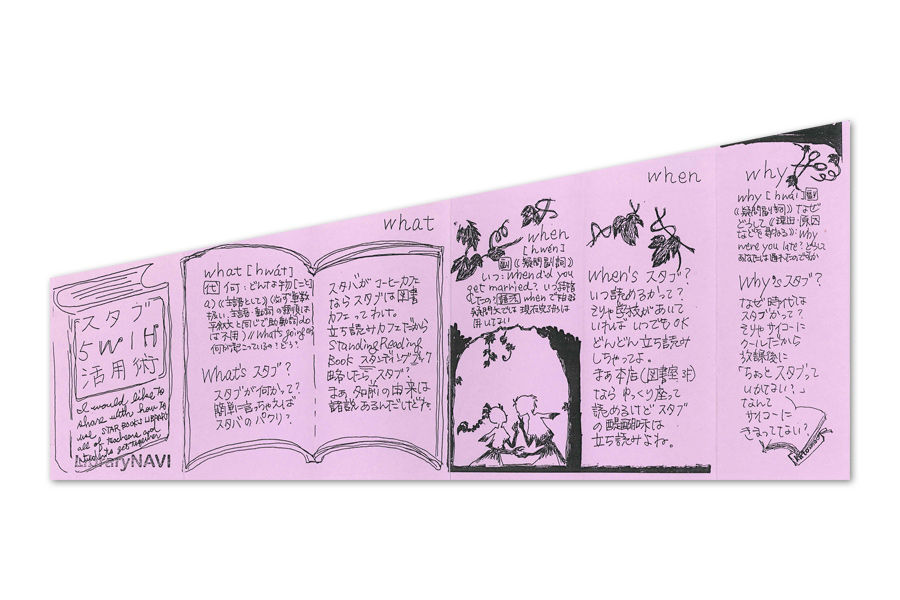 スタブ
5W1H
活用術
I would like to
share with how to
use STAR BOOKS LIBRARY
all of teachers and
LibraryNAVI
what
what [hwát]
代 何:どんな物[こと]
a)《主語として》(必ず単数
扱い.主語・動詞の語順は
平叙文と同じで助動詞do
は不用)// What's going on
何が起こっているの?どう?
What's スタブ?
スタブが何かって?
簡単に言っちゃえば
スタバのパクリ?
スタバが コーヒーカフェ
ならスタブは図書
カフェってわけ。
立ち読みカフェだから
Standing Reading
Book スタンディングブック
略したらスタブ?
まぁ 名前の由来は
諸説あるんだけどネ。
when
when
[hwén]
副《疑問副詞》
いつ:When d'd you
get married? いつ結婚
したの?語法 whenで始まる
疑問文では 現在完了形は
用いない
When's スタブ?
いつ読めるかって?
そりゃ学校があいて
いれば いつでもOK
どんどん立ち読み
しちゃってよ。
まぁ本店(図書室 非)
なら ゆっくり座って
読めるけど スタブ
の醍醐味は
立ち読みよね。
why
why [hwái] 副
《疑問副詞》なぜ
どうして《理由・原因
などを尋ねる》: Why
were you late? どうして
あなたは遅れたのですか
Why'sスタブ?
なぜ時代は
スタブかって?
そりゃサイコーに
クールだから
放課後に
「ちょっとスタブって
いかない?」
なんて
サイコーに
きまっててない?